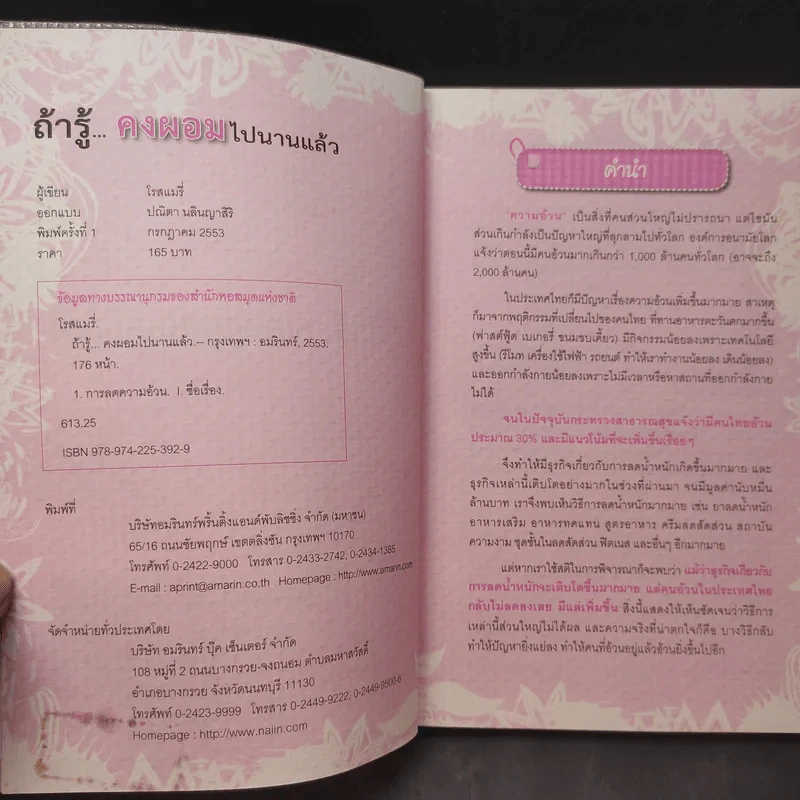 ถ้ารู้... คงผอมไปนานแล้ว
ผู้เขียน โรสแมรี่
ออกแบบ ปณิตา นลินญาสิริ
พิมพ์ครั้งที่ 1 กรกฎาคม 2553
ราคา 165 บาท
ข้อมูลทางบรรณานุกรมของสำนักหอสมุดแห่งชาติ
โรสแมรี่.
ถ้ารู้... คงผอมไปนานแล้ว.-- กรุงเทพฯ : อมรินทร์, 2553.
176 หน้า.
1. การลดความอ้วน. I. ชื่อเรื่อง.
613.25
ISBN 978-974-225-392-9
พิมพ์ที่
บริษัทอมรินทร์พริ้นติ้งแอนด์พับลิชชิ่ง จำกัด (มหาชน)
65/16 ถนนชัยพฤกษ์ เขตตลิ่งชัน กรุงเทพฯ 10170
โทรศัพท์ 0-2422-9000 โทรสาร 0-2433-2742, 0-2434-1385
E-mail : aprint@amarin.co.th Homepage : http://www.amarin.co.th
จัดจำหน่ายทั่วประเทศโดย
บริษัท อมรินทร์ บุ๊ค เซ็นเตอร์ จำกัด
108 หมู่ที่ 2 ถนนบางกรวย-จงถนอม ตำบลมหาสวัสดิ์
อำเภอบางกรวย จังหวัดนนทบุรี 11130
โทรศัพท์ 0-2423-9999 โทรสาร 0-2449-9222, 0-2449-9500-6
Homepage : http://www.naiin.com
คำนำ
"ความอ้วน" เป็นสิ่งที่คนส่วนใหญ่ไม่ปรารถนา แต่ไขมัน
ส่วนเกินกำลังเป็นปัญหาใหญ่ที่ลุกลามไปทั่วโลก องค์การอนามัยโลก
แจ้งว่าตอนนี้มีคนอ้วนมากเกินกว่า 1,000 ล้านคนทั่วโลก (อาจจะถึง
2,000 ล้านคน)
ในประเทศไทยก็มีปัญหาเรื่องความอ้วนเพิ่มขึ้นมากมาย สาเหตุ
ก็มาจากพฤติกรรมที่เปลี่ยนไปของคนไทย ที่ทานอาหารตะวันตกมากขึ้น
(ฟาสต์ฟู้ด เบเกอรี่ ขนมขบเคี้ยว) มีกิจกรรมน้อยลงเพราะเทคโนโลยี
สูงขึ้น (รีโมท เครื่องใช้ไฟฟ้า รถยนต์ ทำให้เราทำงานน้อยลง เดินน้อยลง)
และออกกำลังกายน้อยลงเพราะไม่มีเวลาหรือหาสถานที่ออกกำลังกาย
ไม่ได้
จนในปัจจุบันกระทรวงสาธารณสุขแจ้งว่ามีคนไทยอ้วน
ประมาณ 30% และมีแนวโน้มที่จะเพิ่มขึ้นเรื่อยๆ
จึงทำให้มีธุรกิจเกี่ยวกับการลดน้ำหนักเกิดขึ้นมากมาย และ
ธุรกิจเหล่านี้เติบโตอย่างมากในช่วงที่ผ่านมา จนมีมูลค่านับหมื่น
ล้านบาท เราจึงพบเห็นวิธีการลดน้ำหนักมากมาย เช่น ยาลดน้ำหนัก
อาหารเสริม อาหารทดแทน สูตรอาหาร ครีมลดสัดส่วน สถาบัน
ความงาม ชุดชั้นในลดสัดส่วน ฟิตเนส และอื่นๆ อีกมากมาย
แต่หากเราใช้สติในการพิจารณาก็จะพบว่า แม้ว่าธุรกิจเกี่ยวกับ
การลดน้ำหนักจะเติบโตขึ้นมากมาย แต่คนอ้วนในประเทศไทย
กลับไม่ลดลงเลย มีแต่เพิ่มขึ้น สิ่งนี้แสดงให้เห็นชัดเจนว่าวิธีการ
เหล่านี้ส่วนใหญ่ไม่ได้ผล และความจริงที่น่าตกใจก็คือ บางวิธีกลับ
ทำให้ปัญหายิ่งแย่ลง ทำให้คนที่อ้วนอยู่แล้วอ้วนยิ่งขึ้นไปอีก